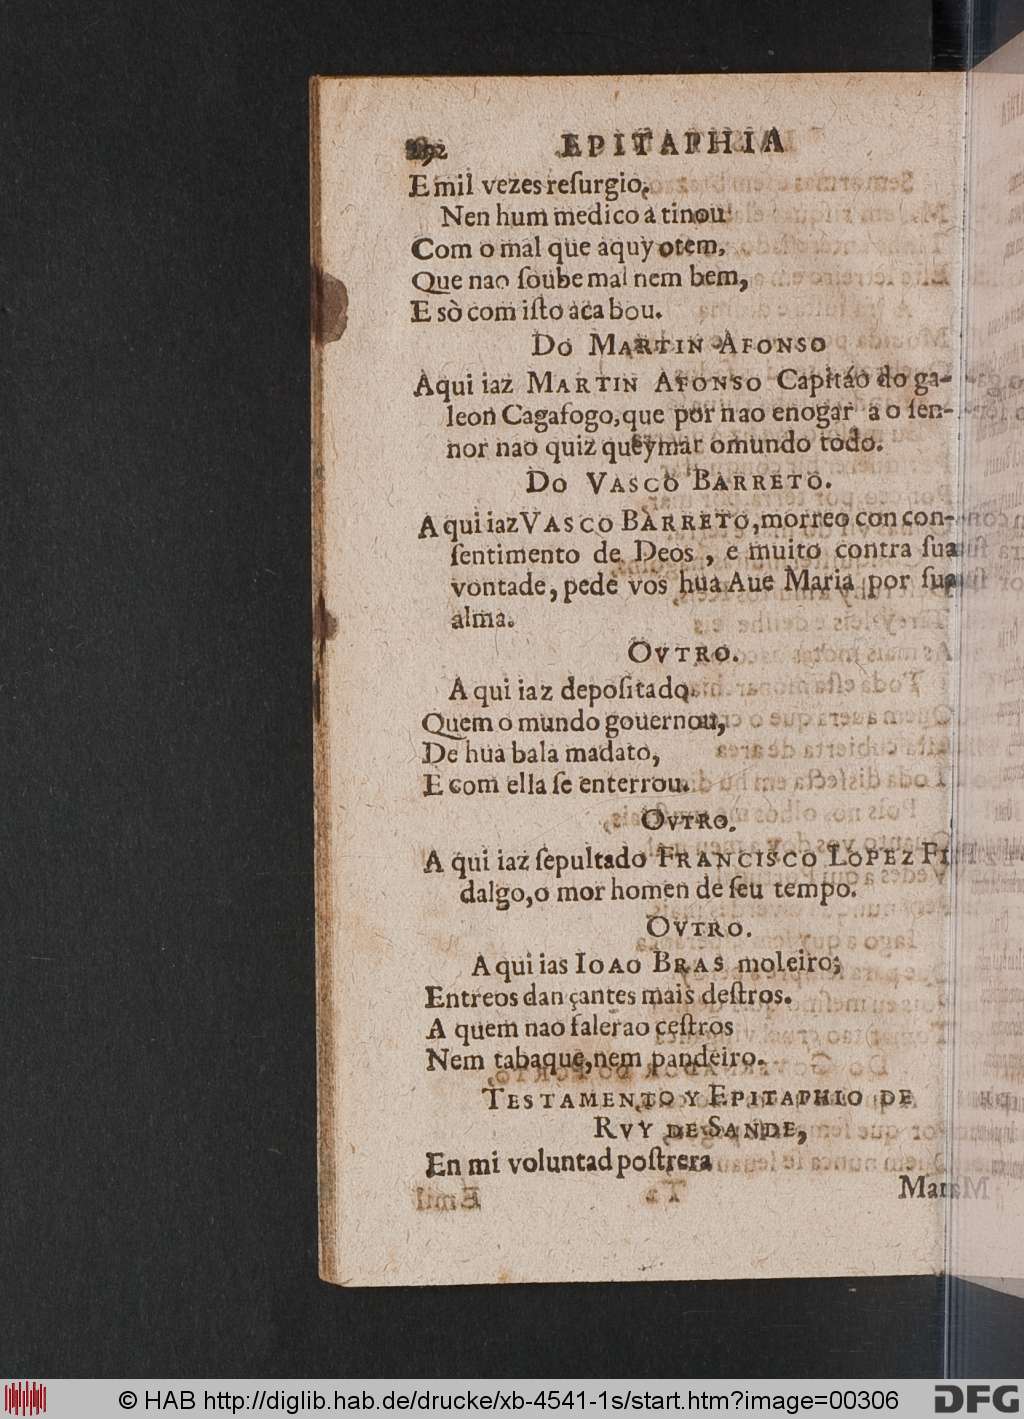 292 EPITAPHIA
E mil vezes reſurgio,
Nen hum medico a tinou
Com o mal que aquy otem,
Que nao ſoube mal nem bem,
E sò com iſto aca bou.
DO MARTIN AFONSO
Aqui iaz MARTIN AFONSO Capitáo do ga-
leon Cagafogo, que por nao enogar a o ſen-
nor nao quiz queymar omundo todo.
DO VASCO BARRETO.
A qui iaz VASCO BARRETO, morreo con con-
ſentimento de Deos, e muito contra ſua
vontade, pede vos hua Aue Maria por ſua
alma.
OVTRO.
A qui iaz depoſitado
Quem o mundo gouernou,
De hua bala madato,
E com ella ſe enterrou.
OVTRO.
A qui iaz ſepultado FRANCISCO LOPEZ FI
dalgo, o mor homen de ſeu tempo.
OVTRO.
A qui ias IOAO BRAS moleiro;
Entreos dançantes mais deſtros.
A quem nao falerao ceſtros
Nem tabaque, nem pandeiro.
TESTAMENTO Y EPITAPHIO DE
RVY DE SANDE,
En mi voluntad poſtrera
Man
© HAB http://diglib.hab.de/drucke/xb-4541-1s/start.htm?image=00306
DFG